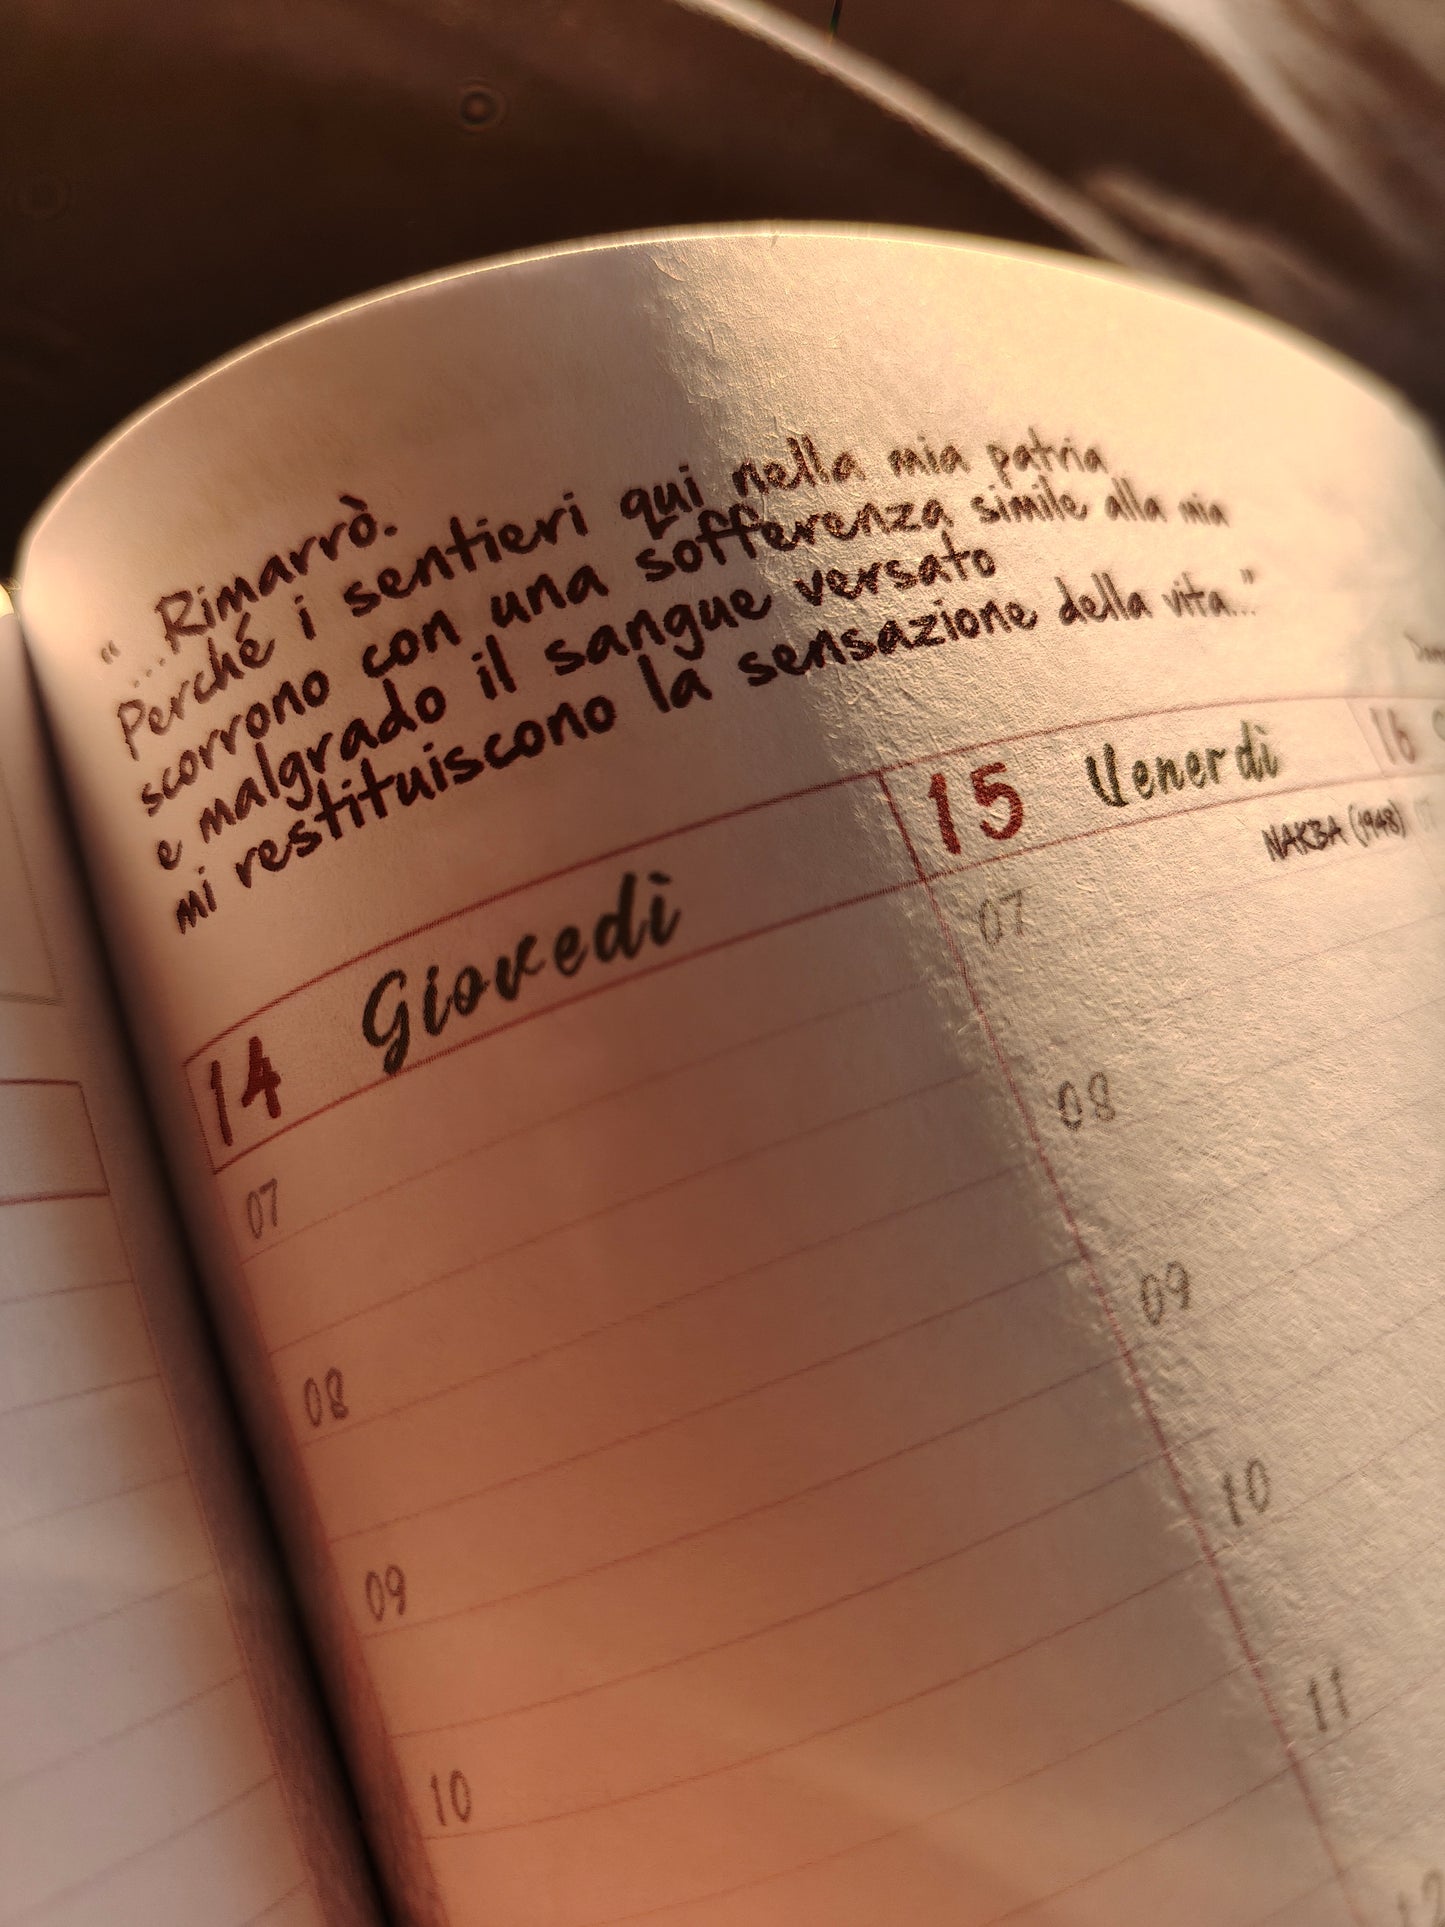 "...Rimarrò.
Perché i sentieri qui nella mia patria
scorrono con una sofferenza simile alla mia
e malgrado il sangue versato
mi restituiscono la sensazione della vita..."
14 Giovedì
07
08
09
10
15 Venerdì
NAKBA (1948)
07
08
09
10
11
12
16
07